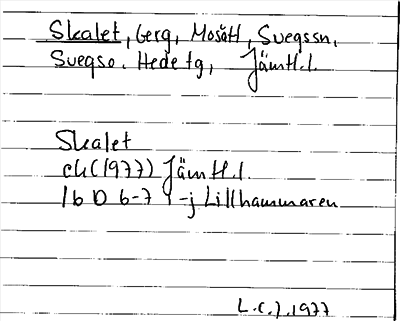 Skalet, Berg, Mosätt, Svegssn,
Svegso. Hede tg, Jämtl.l.
Skalet
ek (1977) Jämtl.l.
16 D 6-7 i-j Lillhammaren
L.C.J. 1977